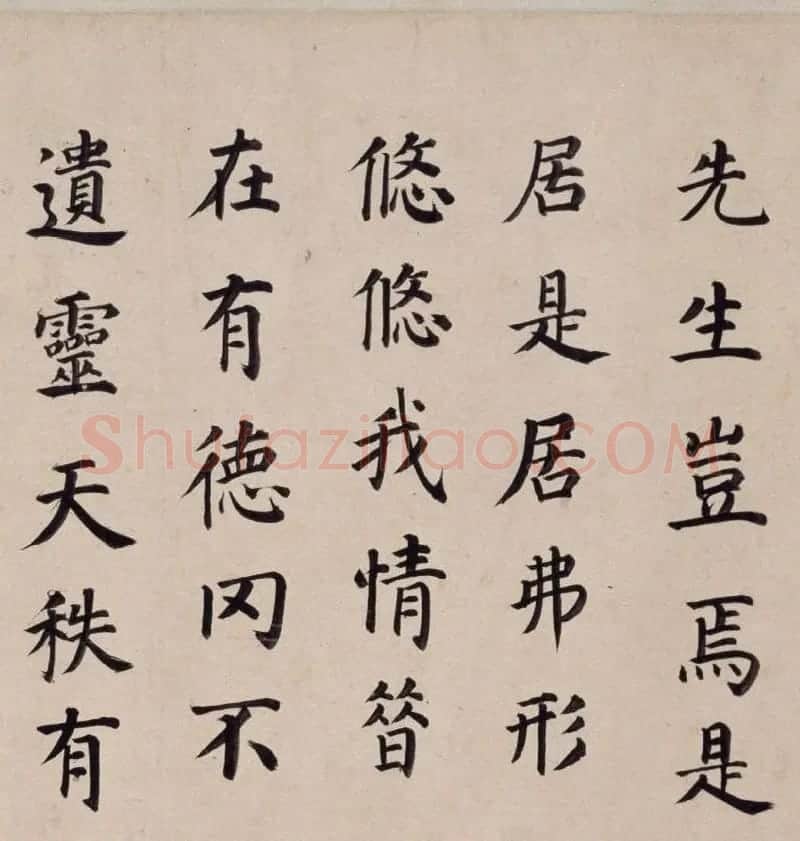 先生豈焉是
居是居弗形
悠悠我情昔
在有德罔不
遺靈天秩有
Shufaziliao.COM